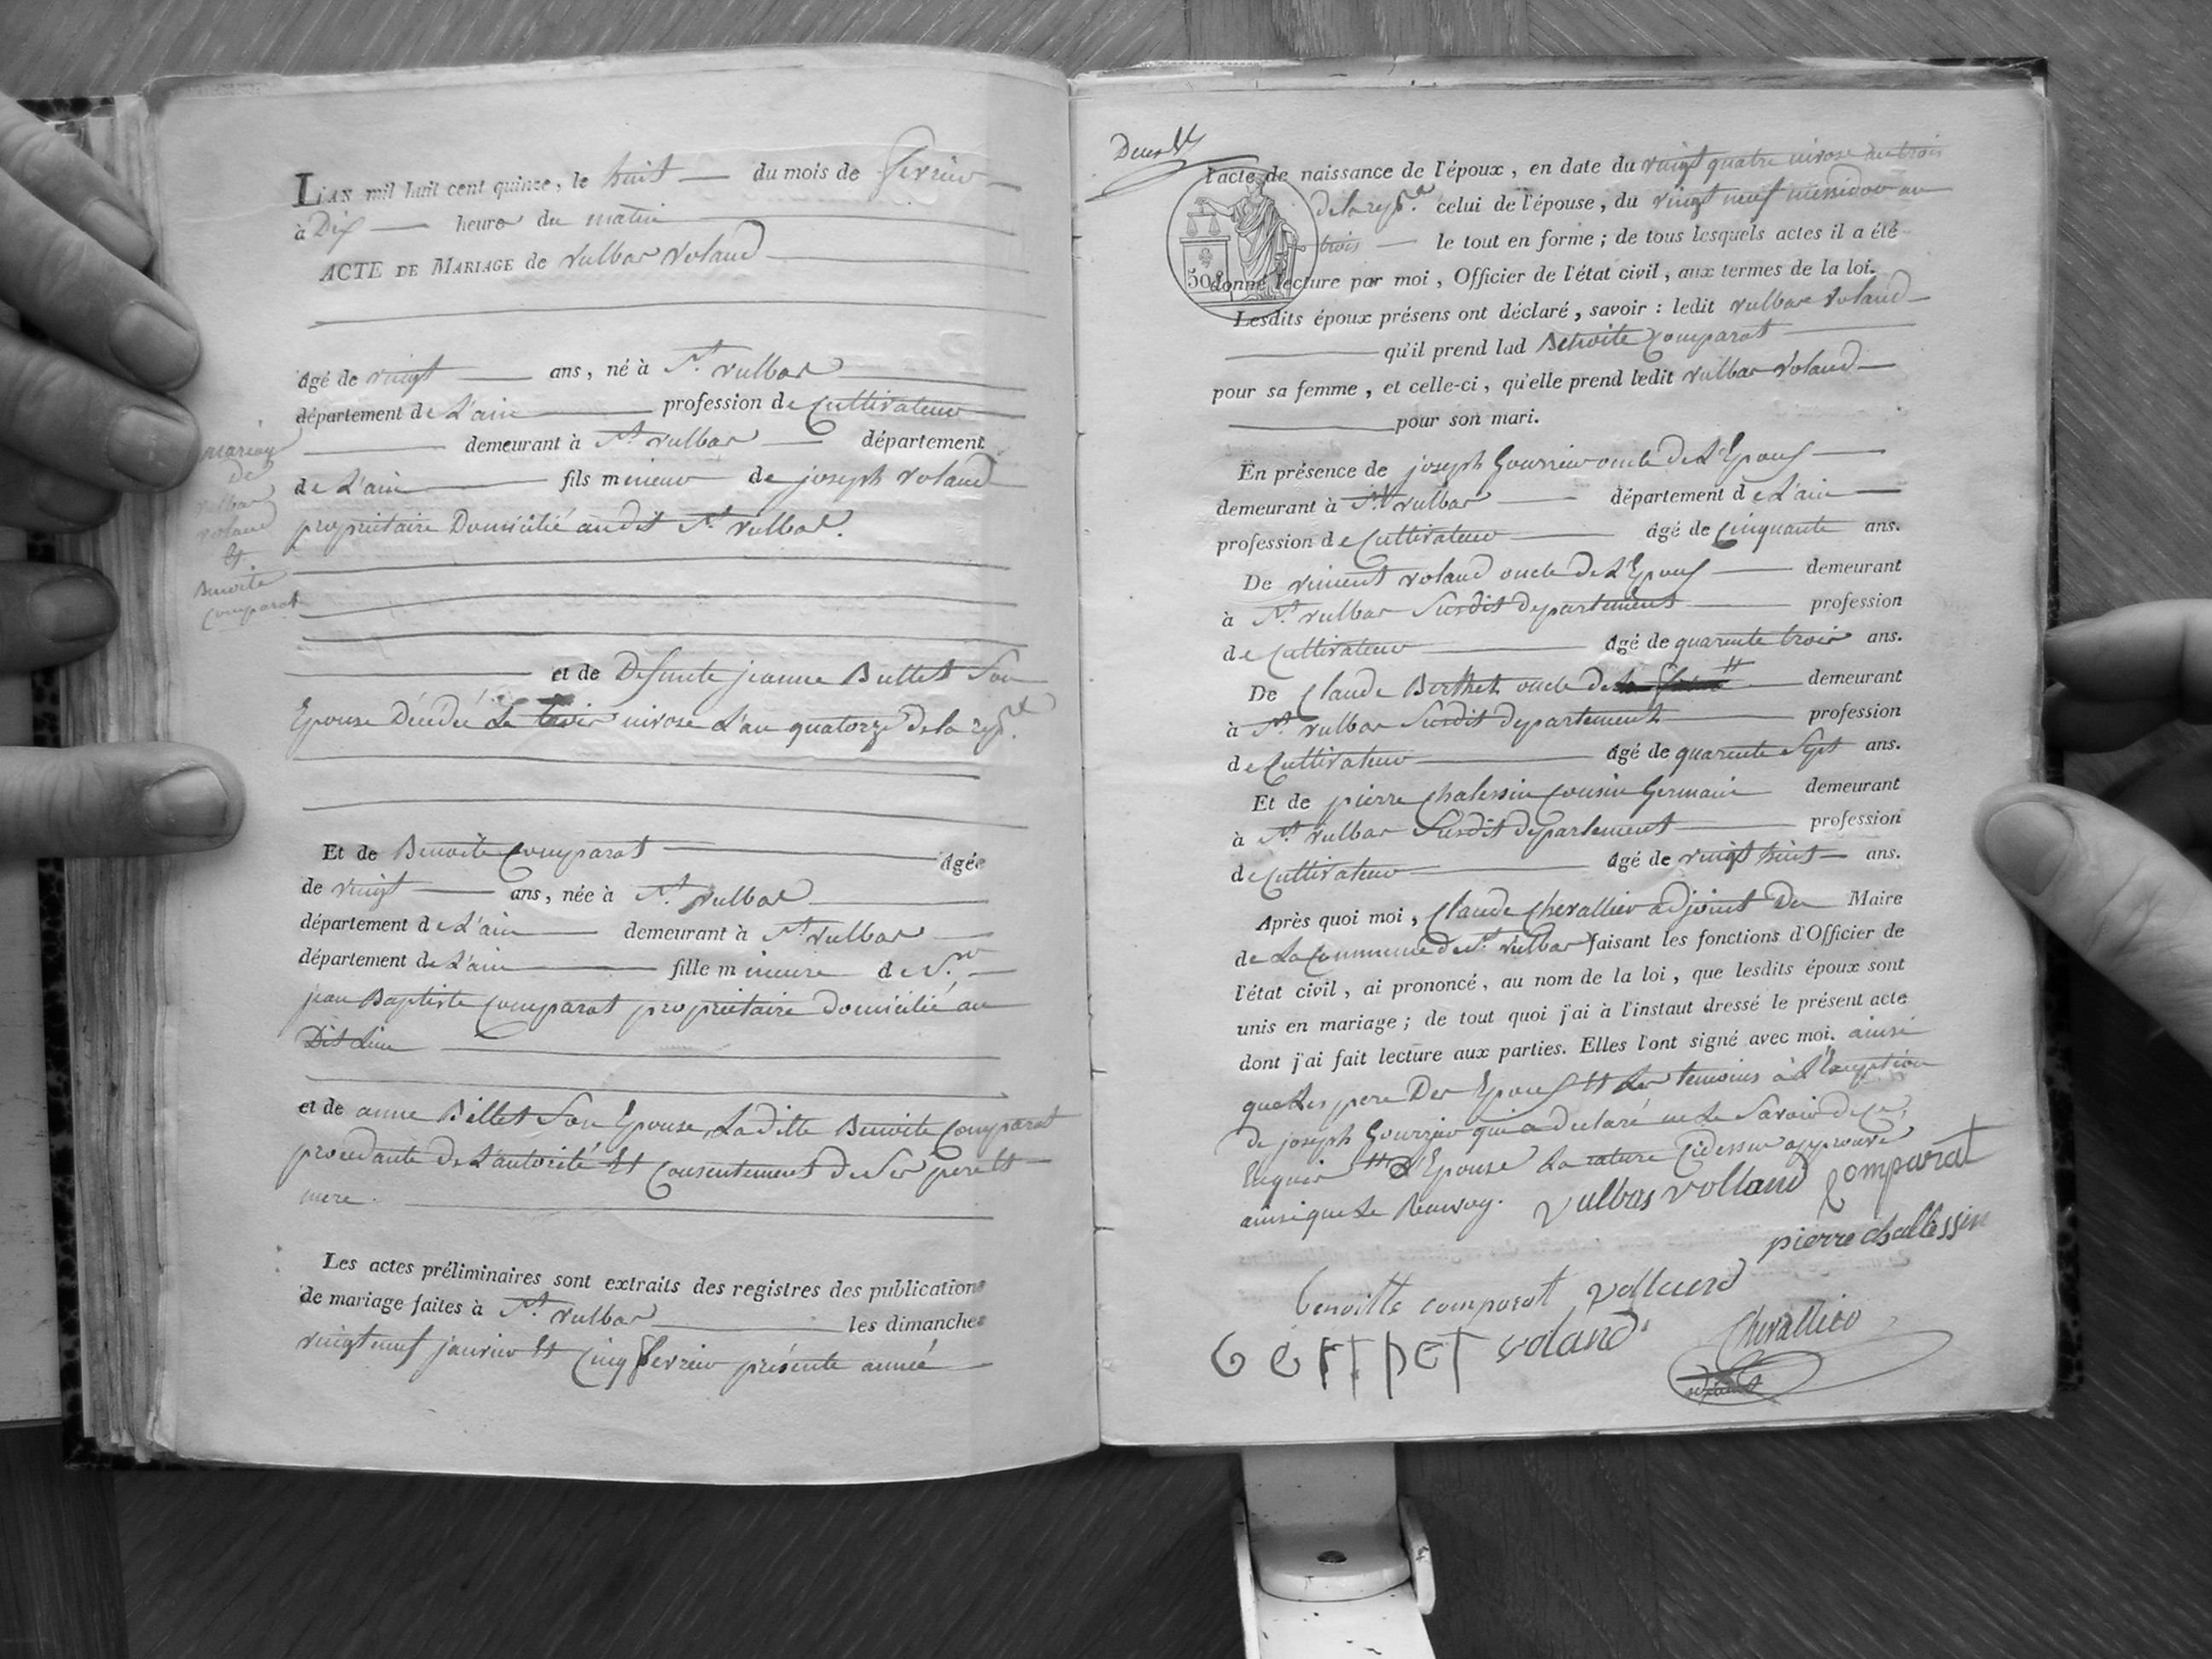 mariage
de
vulbas
voland
Et
Benoite
Comparat
L'AN mil huit cent quinze, le huit du mois de fevrier
à Dix heure du matin
ACTE DE MARIAGE de vulbas voland
âgé de vingt ans, né à St. vulbas
département de L'ain profession de Cultivateur
demeurant à St. vulbas département
de L'ain fils mineur de joseph voland
proprietaire Domicilié audit St. vulbas.
et de Defunte jeanne Buttet Son
Epouse Décédée Le nivose L'an quatorze de la rep.
Et de Benoite Comparat âgée
de vingt ans, née à St. vulbas
département de L'ain demeurant à St. vulbas
département de L'ain fille mineure de S.r
jean Baptiste Comparat proprietaire domicilié au
Dit Lieu
et de anne Billet Son Epouse Laditte Benoite Comparat
procedante de L'autorité Et Consentement de Ses pere Et
mere.
Les actes préliminaires sont extraits des registres des publications
de mariage faites à St. vulbas les dimanches
vingt neuf janvier Et Cinq fevrier présente année
l'acte de naissance de l'époux, en date du vingt quatre nivose an trois
de la rep. celui de l'épouse, du vingt neuf messidor an
trois le tout en forme; de tous lesquels actes il a été
50c donné lecture par moi, Officier de l'état civil, aux termes de la loi.
Lesdits époux présens ont déclaré, savoir : ledit vulbas voland
qu'il prend lad Benoite Comparat
pour sa femme, et celle-ci, qu'elle prend ledit vulbas voland
pour son mari.
En présence de joseph Gourrieu oncle de L'Epoux
demeurant à St. vulbas département de L'ain
profession de Cultivateur âgé de Cinquante ans.
De vincent voland oncle de L'Epoux demeurant
à St. vulbas Susdit departement profession
de Cultivateur âgé de quarente trois ans.
De Claude Berthet oncle de demeurant
à St. vulbas Susdit departement profession
de Cultivateur âgé de quarente Sept ans.
Et de pierre Chalessin Cousin Germain demeurant
à St. vulbas Susdit departement profession
de Cultivateur âgé de vingt huit ans.
Après quoi moi, Claude Chevallier adjoint Du Maire
de La Commune de St. vulbas faisant les fonctions d'Officier de
l'état civil, ai prononcé, au nom de la loi, que lesdits époux sont
unis en mariage; de tout quoi j'ai à l'instant dressé le présent acte
dont j'ai fait lecture aux parties. Elles l'ont signé avec moi. ainsi
que Les pere Des Epoux Et Les temoins à L'Exception
de joseph Gourrieu qui a declaré ne Le Savoir de ce
Enquis L'Epouse La rature Cidessus approuvé
ainsi que Le Renvoy. vulbas volland Comparat
pierre challessin
benoitte comparat volland
berthet voland Chevallier